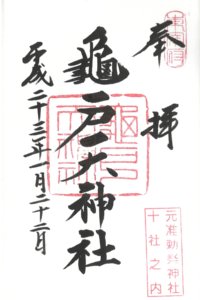 奉拝
元准勅祭神社
十社之内
龜戸天神社
平成二十三年一月二十二日